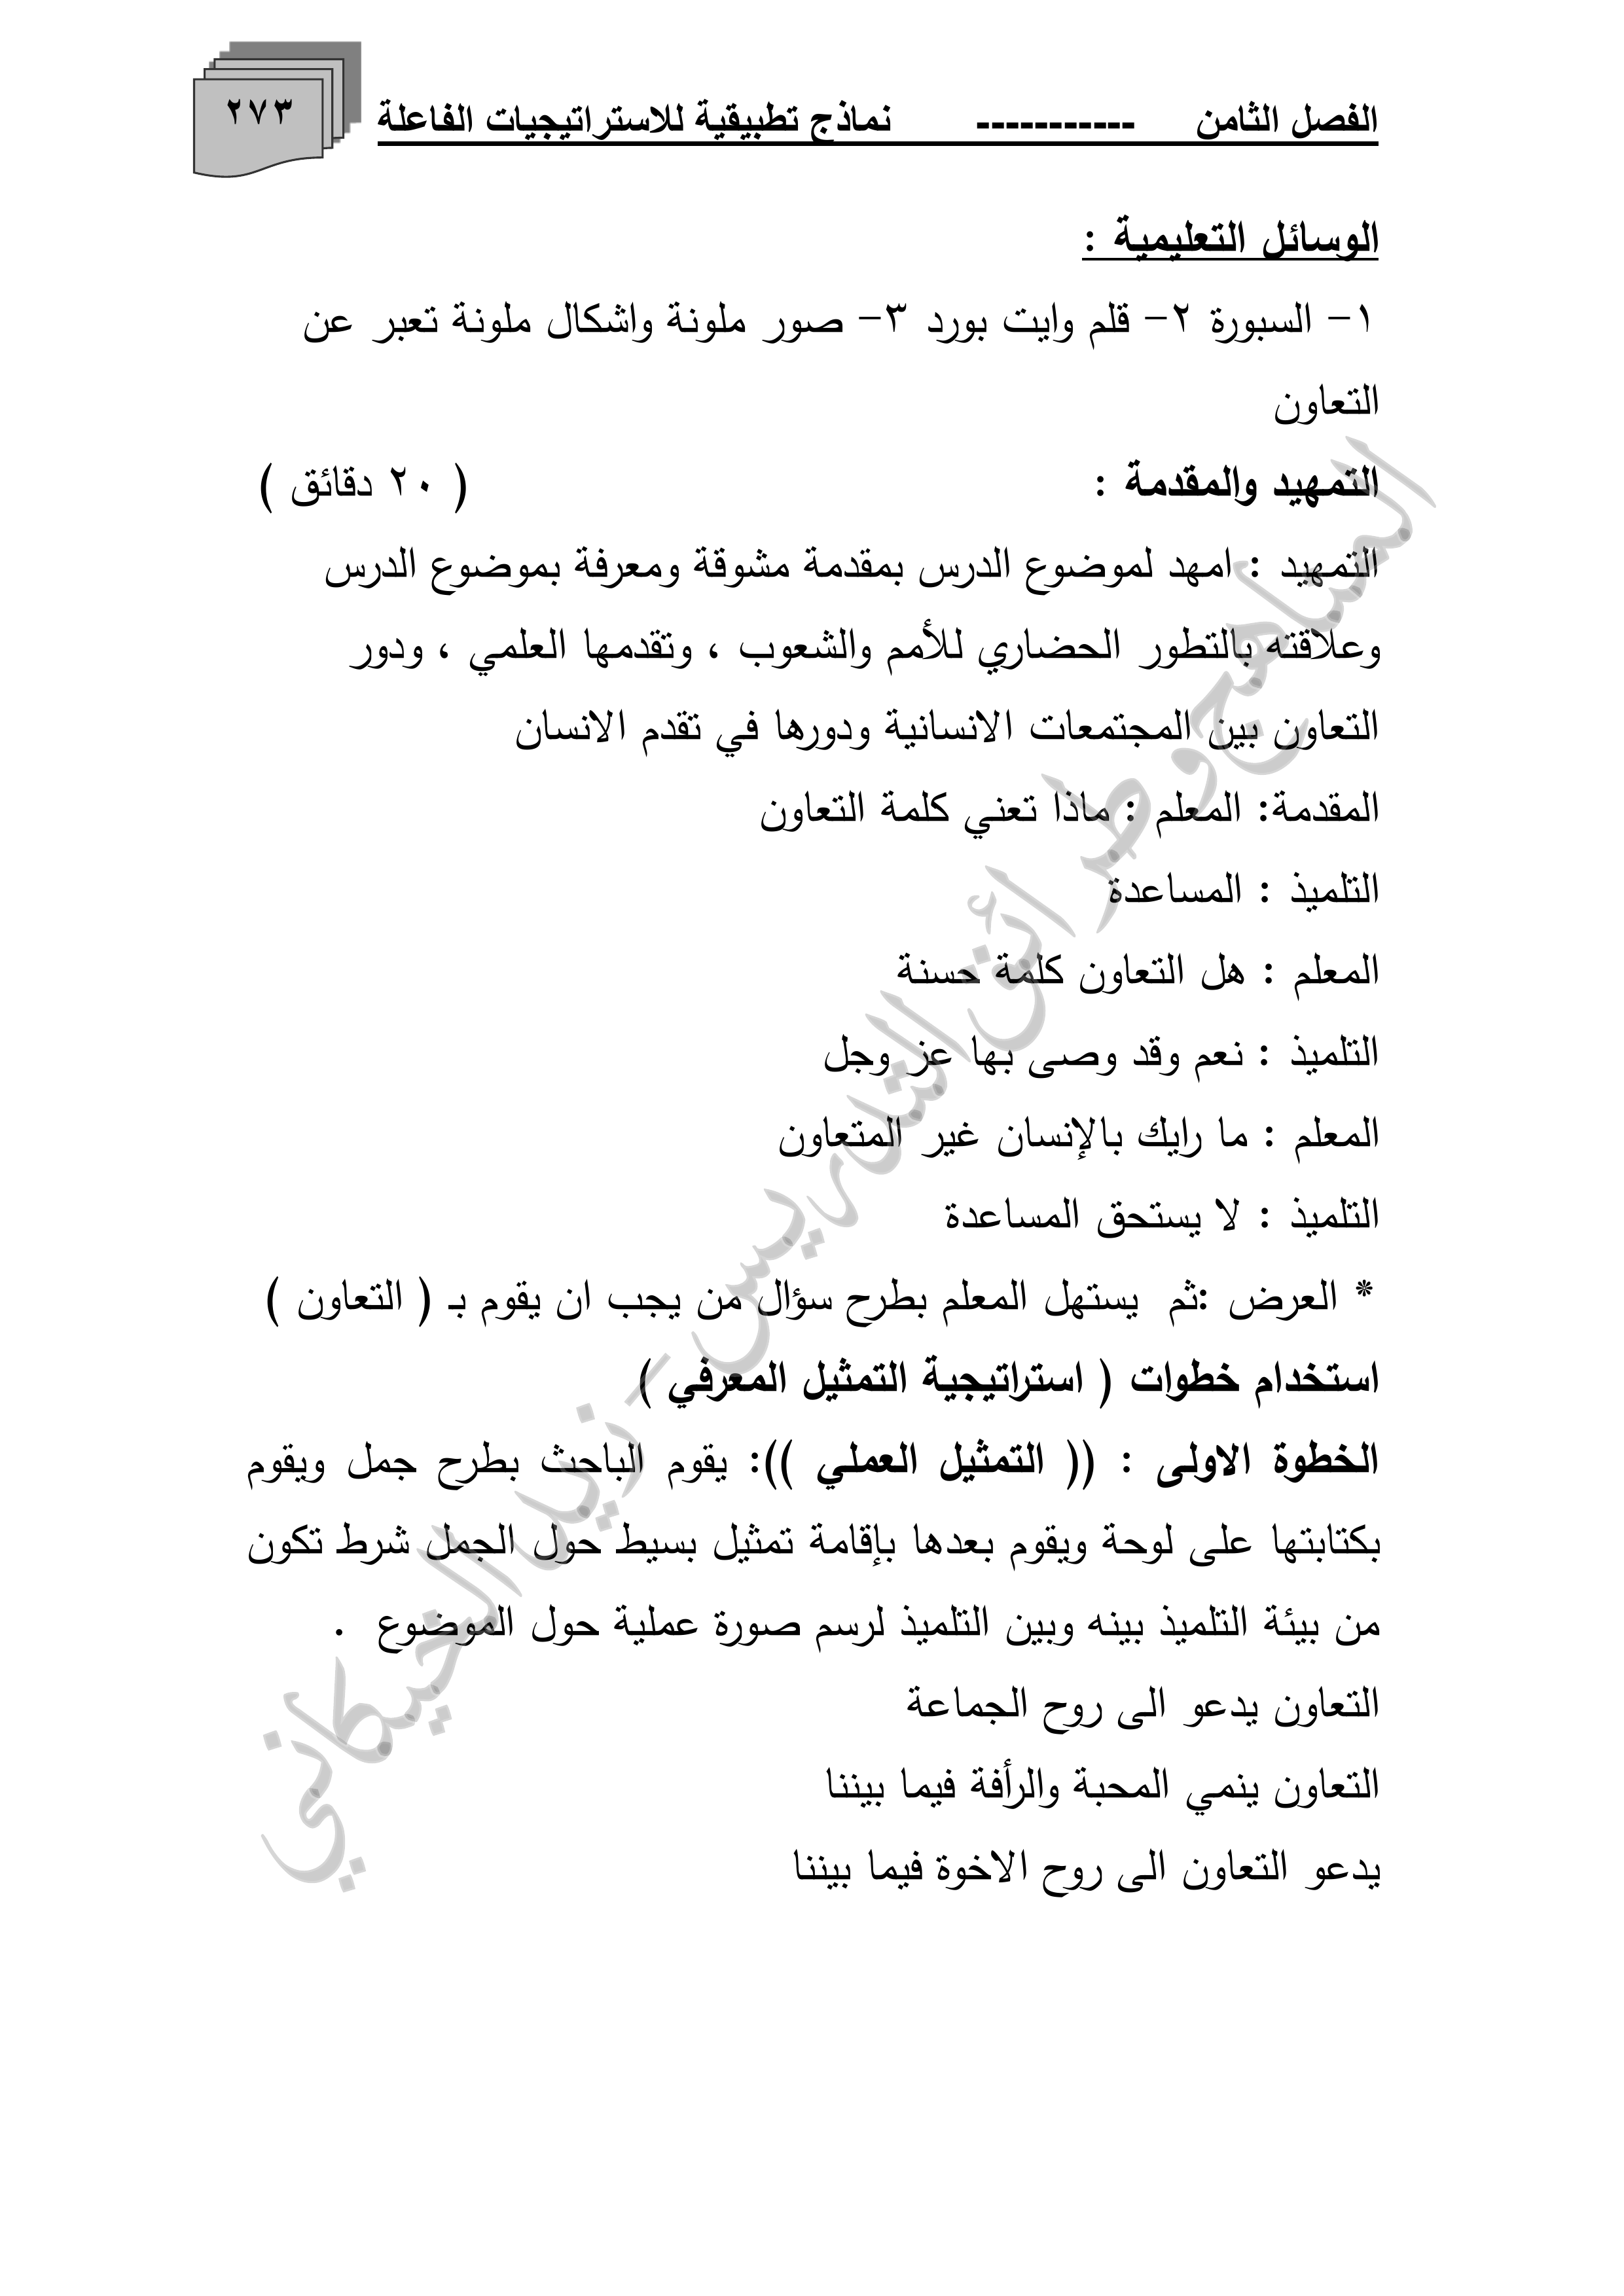 الفصل الثامن ----------- نماذج تطبيقية للاستراتيجيات الفاعلة ٢٧٣
الوسائل التعليمية :
١- السبورة ٢- قلم وايت بورد ٣- صور ملونة واشكال ملونة تعبر عن
التعاون
التمهيد والمقدمة : ( ٢٠ دقائق )
التمهيد : امهد لموضوع الدرس بمقدمة مشوقة ومعرفة بموضوع الدرس
وعلاقته بالتطور الحضاري للأمم والشعوب ، وتقدمها العلمي ، ودور
التعاون بين المجتمعات الانسانية ودورها في تقدم الانسان
المقدمة: المعلم : ماذا تعني كلمة التعاون
التلميذ : المساعدة
المعلم : هل التعاون كلمة حسنة
التلميذ : نعم وقد وصى بها عز وجل
المعلم : ما رايك بالإنسان غير المتعاون
التلميذ : لا يستحق المساعدة
* العرض :ثم يستهل المعلم بطرح سؤال من يجب ان يقوم بـ ( التعاون )
استخدام خطوات ( استراتيجية التمثيل المعرفي )
الخطوة الاولى : (( التمثيل العملي )): يقوم الباحث بطرح جمل ويقوم
بكتابتها على لوحة ويقوم بعدها بإقامة تمثيل بسيط حول الجمل شرط تكون
من بيئة التلميذ بينه وبين التلميذ لرسم صورة عملية حول الموضوع .
التعاون يدعو الى روح الجماعة
التعاون ينمي المحبة والرأفة فيما بيننا
يدعو التعاون الى روح الاخوة فيما بيننا
المناهج وطرائق التدريس - زيد الخيكاني